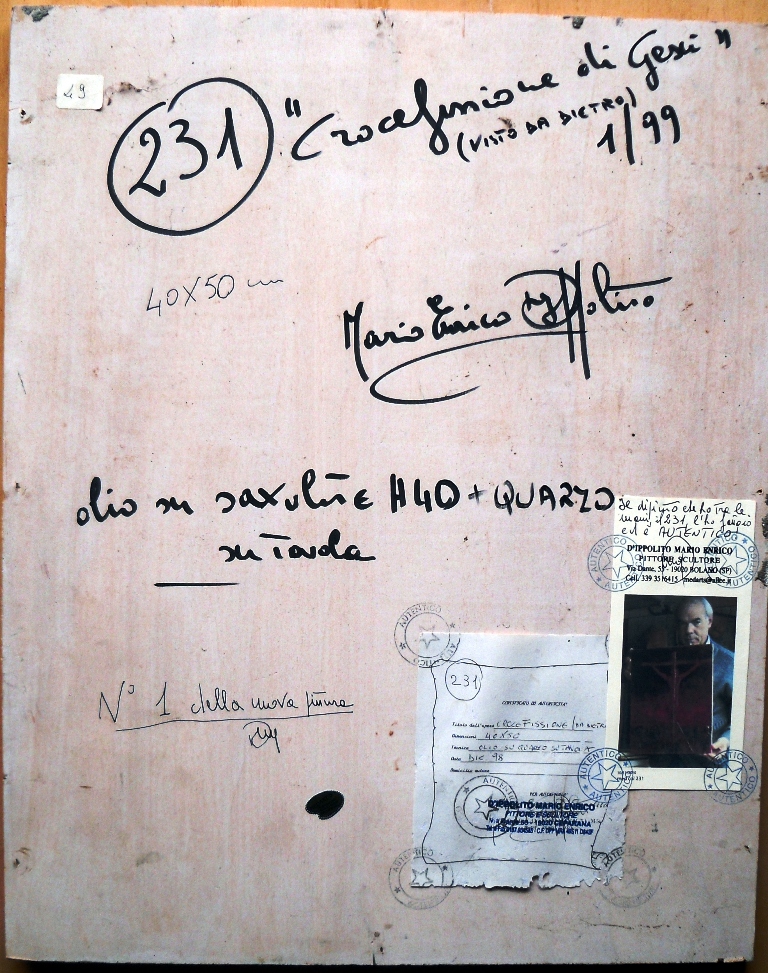 49
231
"Crocefissione di Gesù"
(VISTO DA DIETRO)
1/99
40X50 cm
Mario Enrico D'Ippolito
olio su saxolite H40 + QUARZO
su tavola
N° 1 della nuova firma
Il dipinto che ho tra le
mani, il 231, l'ho
ed è AUTENTICO!
D'IPPOLITO MARIO ENRICO
PITTORE SCULTORE
Via Dante, 57 - 19020 BOLANO (SP)
AUTENTICO
AUTENTICO
231
CERTIFICATO DI AUTENTICITA'
Titolo dell'opera CROCEFISSIONE (DA DIETRO
Dimensioni 40X50
Tecnica OLIO SU QUARZO SU TAVOLA
Data DIC 98
PER AUTENTICA
D'IPPOLITO MARIO ENRICO
PITTORE SCULTORE
19020 CEPARANA
AUTENTICO
AUTENTICO
AUTENTICO